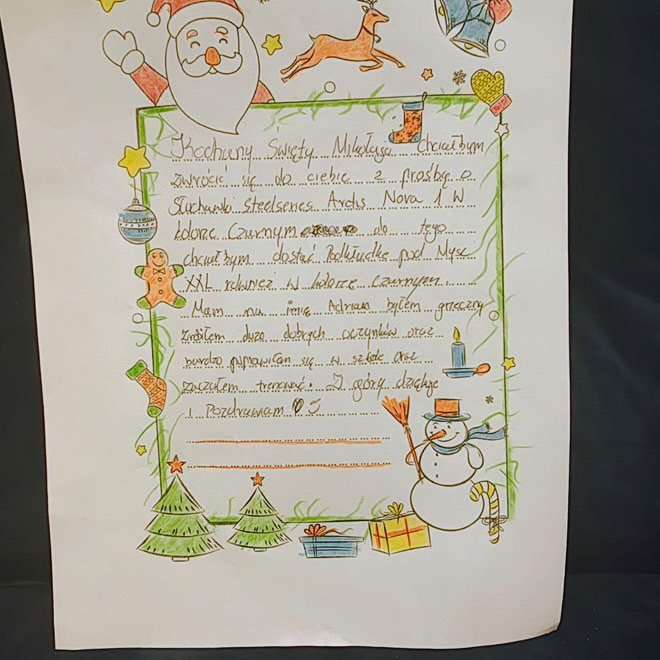 Kochany Święty Mikołaju chciałbym
zwrócić się do ciebie z prośbą o
Słuchawki Steelseries Arctis Nova 1 W
kolorze Czarnym do tego
chciałbym dostać Podkładkę pod Mysz
XXL również w kolorze czarnym
Mam na imię Adrian byłem grzeczny
Zrobiłem dużo dobrych uczynków oraz
bardzo poprawiłem się w szkole oraz
zacząłem trenować. Z góry dziękuje
i Pozdrawiam